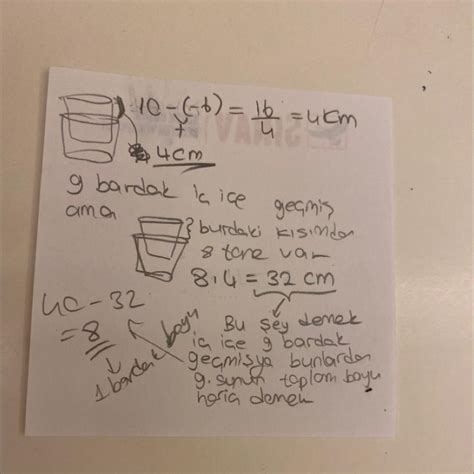 10-(-6) = 16/4 = 4cm
+
4cm
9 bardak iç içe geçmiş
ama
burdaki kısımdan
8 tane var
8.4 = 32 cm
40-32
= 8
1 bardak boyu
Bu şey demek
iç içe 9 bardak
geçmişya bunlardan
9. sunun toplam boyu
hariç demek
SINAV